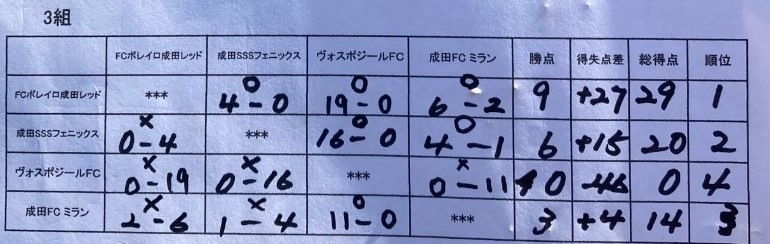 3組
FCボレイロ成田レッド 成田SSSフェニックス ヴォスポジールFC 成田FCミラン 勝点 得失点差 総得点 順位
FCボレイロ成田レッド *** ○ 4-0 ○ 19-0 ○ 6-2 9 +27 29 1
成田SSSフェニックス × 0-4 *** ○ 16-0 ○ 4-1 6 +15 20 2
ヴォスポジールFC × 0-19 × 0-16 *** × 0-11 0 -46 0 4
成田FCミラン × 2-6 × 1-4 ○ 11-0 *** 3 +4 14 3